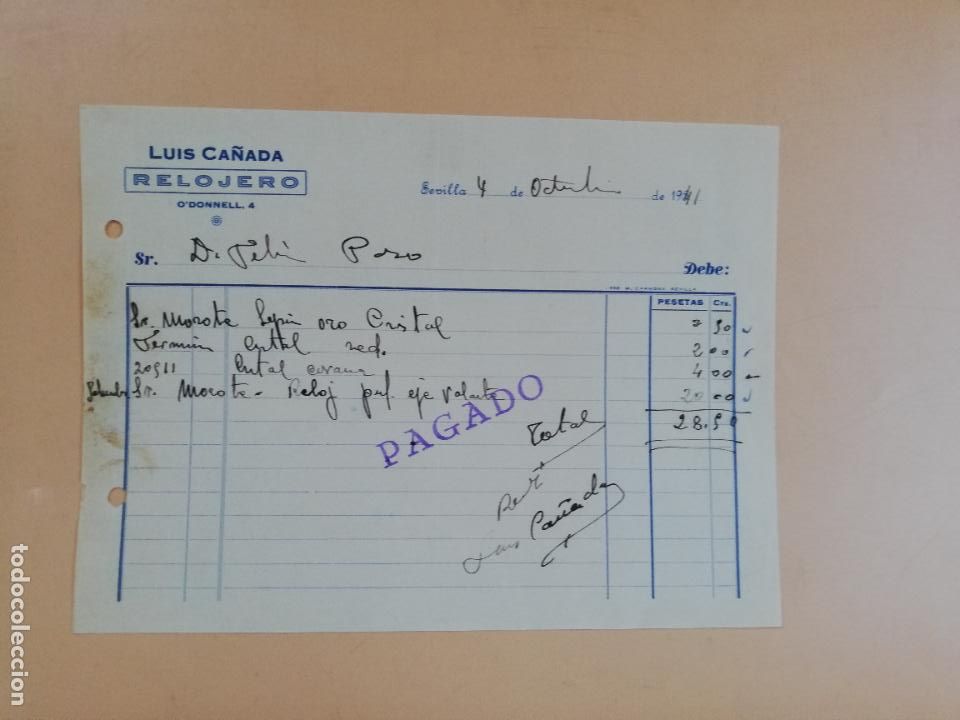 LUIS CAÑADA
RELOJERO
O'DONNELL, 4
Sevilla 4 de Octubre de 1941
Sr. D. Felix Pozo
Debe:
PESETAS Cts.
Sr. Morote Lepin oro Cristal 2 50
Cristal red. 2 00
20511 Cristal 4 00
Sr. Morote - Reloj pul. eje volante 20 00
PAGADO
Total 28.50
Luis Cañada
todocoleccion